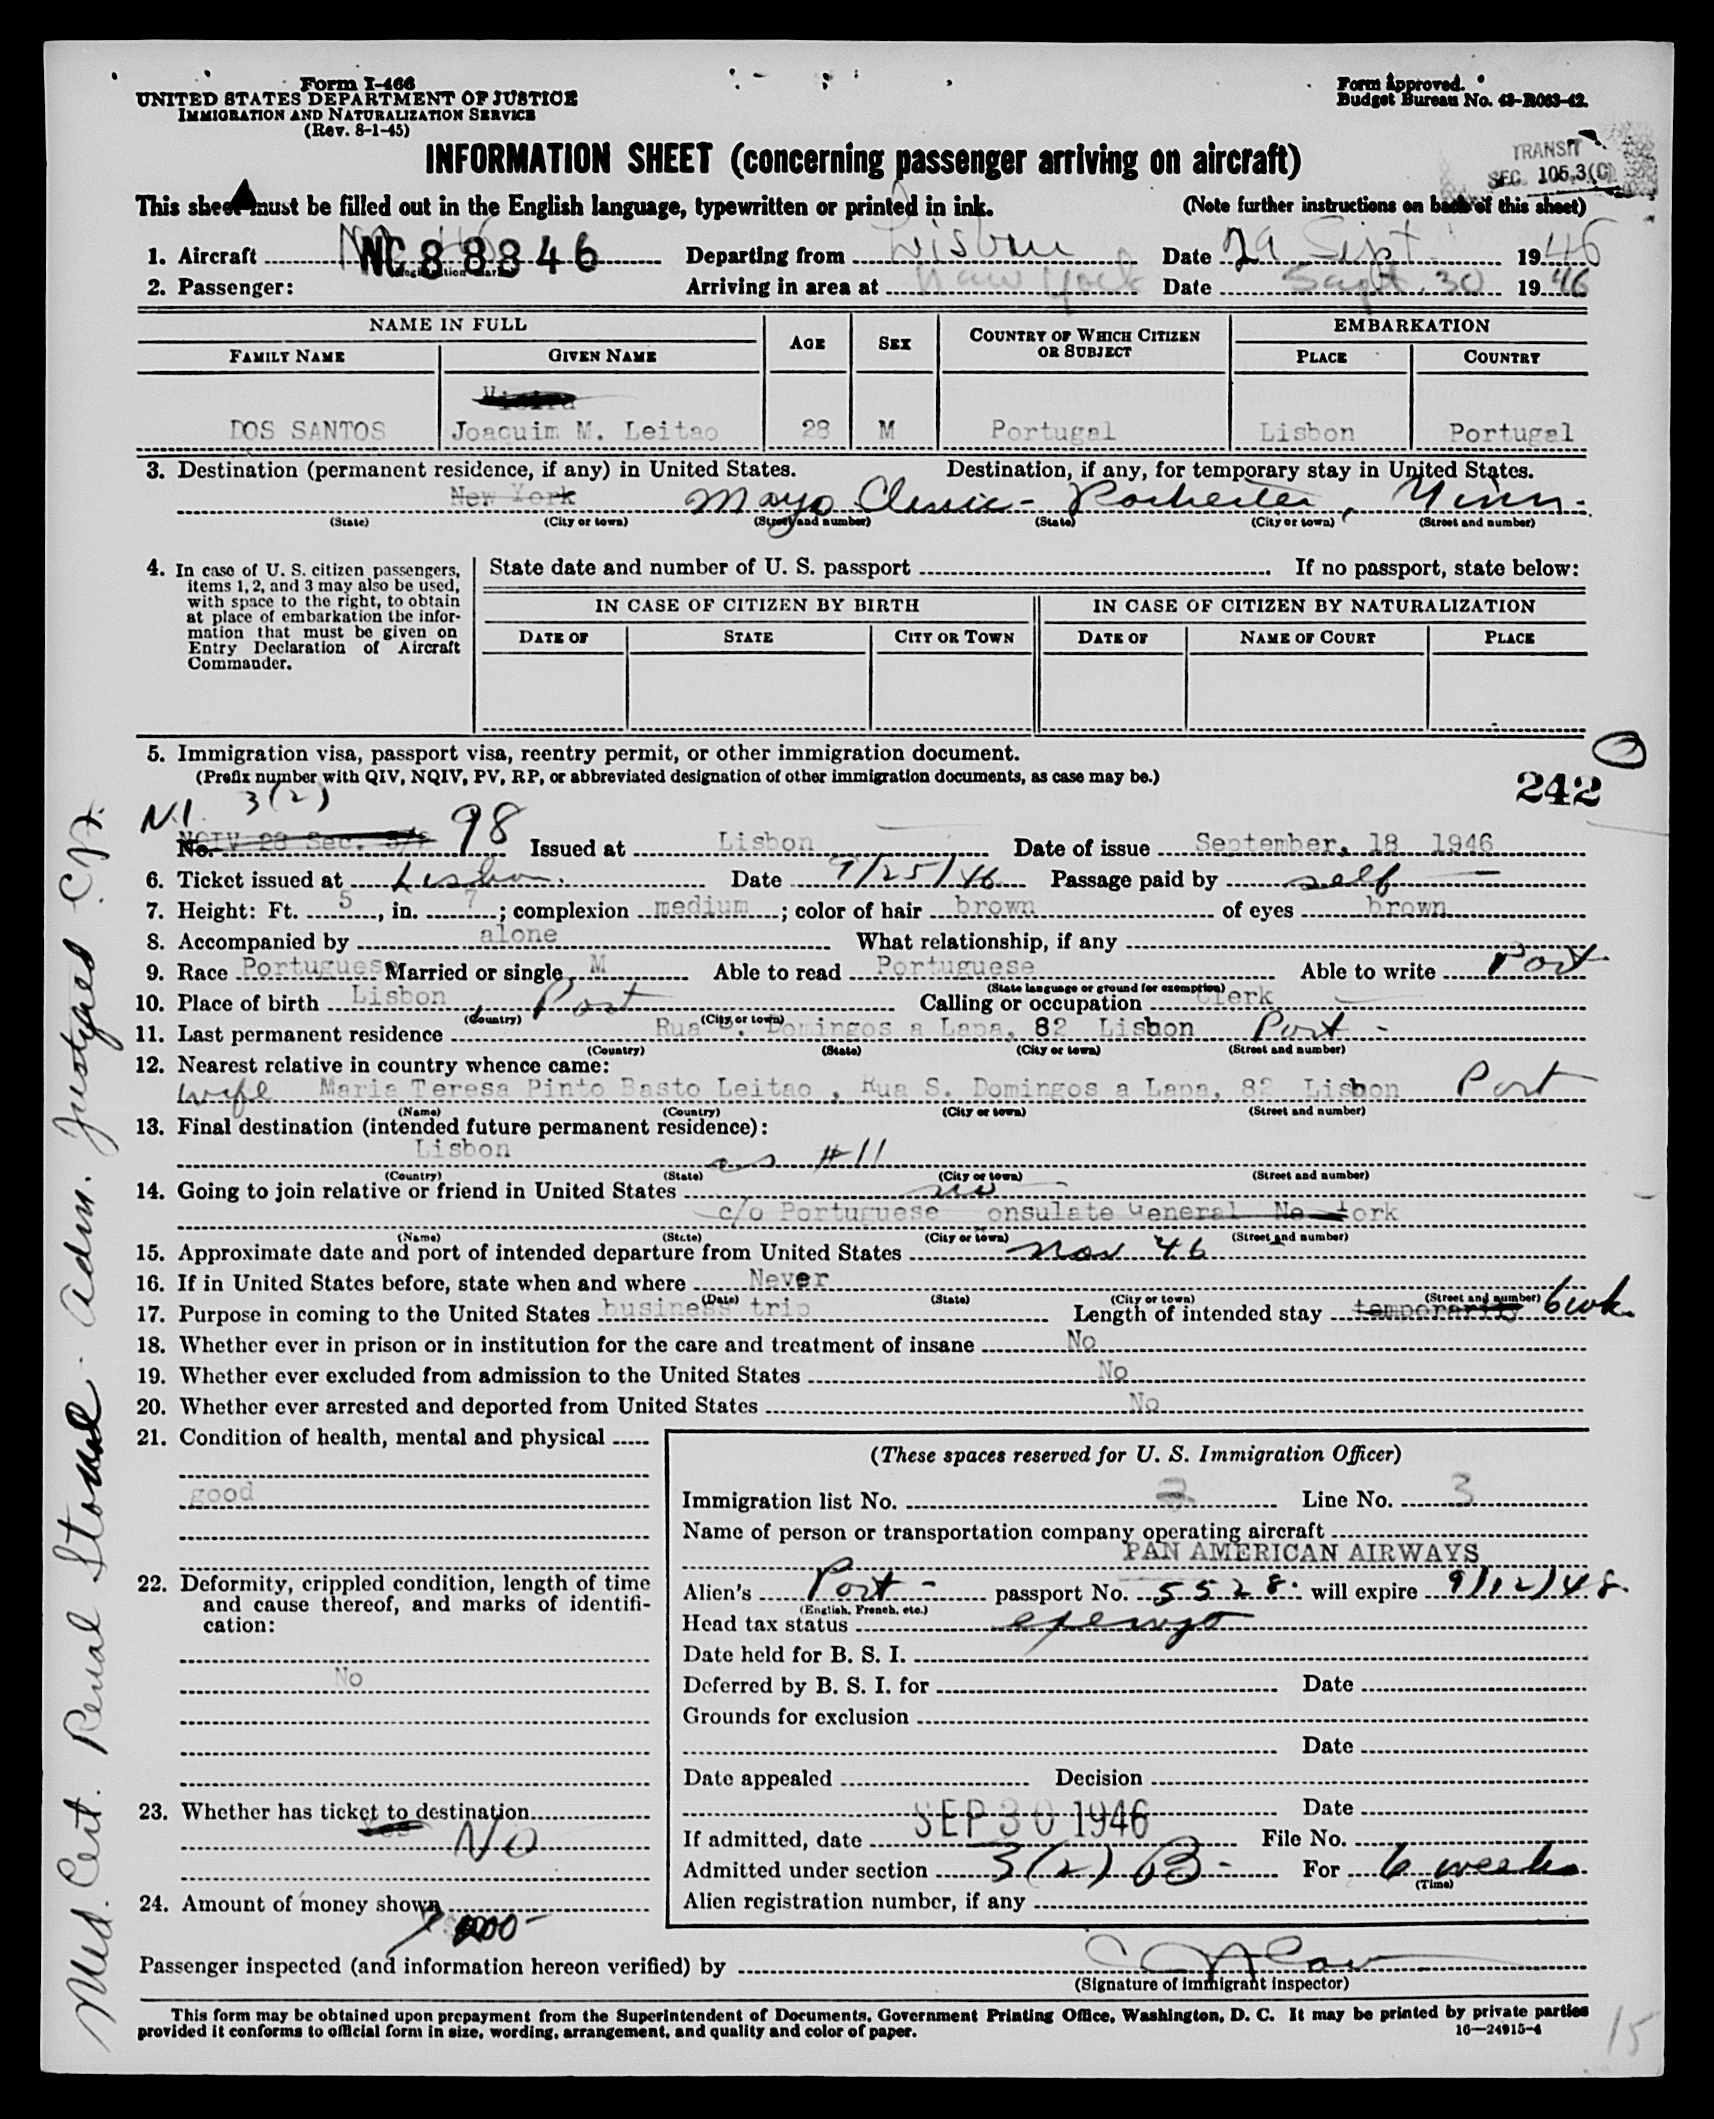 Form I-466
UNITED STATES DEPARTMENT OF JUSTICE
IMMIGRATION AND NATURALIZATION SERVICE
(Rev. 8-1-45)
Form Approved.
Budget Bureau No. 43-R063-42.
INFORMATION SHEET (concerning passenger arriving on aircraft)
TRANSIT
SEC. 105.3(C)
This sheet must be filled out in the English language, typewritten or printed in ink. (Note further instructions on back of this sheet)
1. Aircraft NC 88846 Departing from Lisbon Date 29 Sept. 1946
2. Passenger: Arriving in area at New York Date Sept. 30 1946
NAME IN FULL
FAMILY NAME GIVEN NAME AGE SEX COUNTRY OF WHICH CITIZEN OR SUBJECT EMBARKATION PLACE COUNTRY
DOS SANTOS Joaquim M. Leitao 28 M Portugal Lisbon Portugal
3. Destination (permanent residence, if any) in United States. Destination, if any, for temporary stay in United States.
New York Mayo Clinic - Rochester, Minn.
(State) (City or town) (Street and number) (State) (City or town) (Street and number)
4. In case of U. S. citizen passengers, items 1, 2, and 3 may also be used, with space to the right, to obtain at place of embarkation the information that must be given on Entry Declaration of Aircraft Commander.
State date and number of U. S. passport If no passport, state below:
IN CASE OF CITIZEN BY BIRTH IN CASE OF CITIZEN BY NATURALIZATION
DATE OF STATE CITY OR TOWN DATE OF NAME OF COURT PLACE
5. Immigration visa, passport visa, reentry permit, or other immigration document.
(Prefix number with QIV, NQIV, PV, RP, or abbreviated designation of other immigration documents, as case may be.)
242
N.I. 3(2)
No. 98 Issued at Lisbon Date of issue September, 18 1946
6. Ticket issued at Lisbon. Date 9/25/46 Passage paid by self
7. Height: Ft. 5, in. 7; complexion medium; color of hair brown of eyes brown
8. Accompanied by alone What relationship, if any
9. Race Portuguese Married or single M Able to read Portuguese Able to write Port
(State language or ground for exemption)
10. Place of birth Lisbon Port Calling or occupation Clerk
(Country) (City or town)
11. Last permanent residence Rua S. Domingos a Lapa, 82 Lisbon Port -
(Country) (State) (City or town) (Street and number)
12. Nearest relative in country whence came:
wife Maria Teresa Pinto Basto Leitao , Rua S. Domingos a Lapa, 82 Lisbon Port
(Name) (Country) (City or town) (Street and number)
13. Final destination (intended future permanent residence):
Lisbon as #11
(Country) (State) (City or town) (Street and number)
14. Going to join relative or friend in United States no
c/o Portuguese onsulate General New York
(Name) (State) (City or town) (Street and number)
15. Approximate date and port of intended departure from United States Nov 46
16. If in United States before, state when and where Never
(Date) (State) (City or town) (Street and number)
17. Purpose in coming to the United States business trip Length of intended stay temporarily 6 wk.
18. Whether ever in prison or in institution for the care and treatment of insane No
19. Whether ever excluded from admission to the United States No
20. Whether ever arrested and deported from United States No
21. Condition of health, mental and physical
good
22. Deformity, crippled condition, length of time and cause thereof, and marks of identification:
No
23. Whether has ticket to destination
No
24. Amount of money shown
(These spaces reserved for U. S. Immigration Officer)
Immigration list No. 2 Line No. 3
Name of person or transportation company operating aircraft
PAN AMERICAN AIRWAYS
Alien's Port - passport No. 5528 will expire 9/12/48.
(English, French, etc.)
Head tax status exempt
Date held for B. S. I.
Deferred by B. S. I. for Date
Grounds for exclusion
Date
Date appealed Decision
Date
If admitted, date SEP 30 1946 File No.
Admitted under section 3(2) B - For 6 weeks
(Time)
Alien registration number, if any
Passenger inspected (and information hereon verified) by
(Signature of immigrant inspector)
This form may be obtained upon prepayment from the Superintendent of Documents, Government Printing Office, Washington, D. C. It may be printed by private parties
provided it conforms to official form in size, wording, arrangement, and quality and color of paper. 16—24915-4
15
Med. Cert. Renal Stone - Adm. Justified